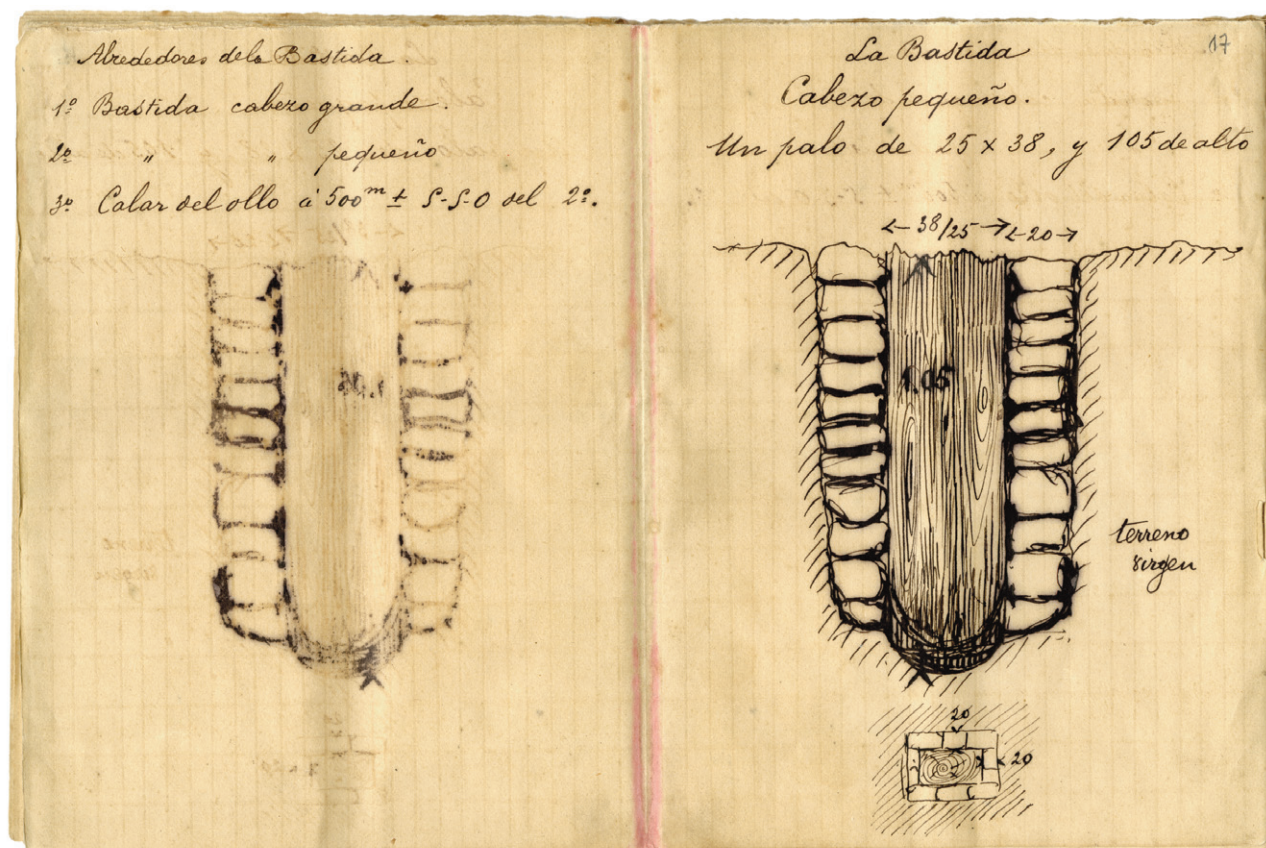 Alrededores dela Bastida.
1º Bastida cabezo grande.
2º " " pequeño
3º Calar del ollo á 500 m ± S-S-O del 2º.
17
La Bastida
Cabezo pequeño.
Un palo de 25 x 38, y 105 de alto
38/25
20
1.05
terreno
virgen
20
20